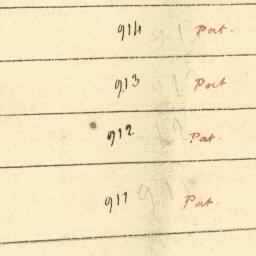 914 Pat.
913 Pat
912 Pat.
911 Pat.